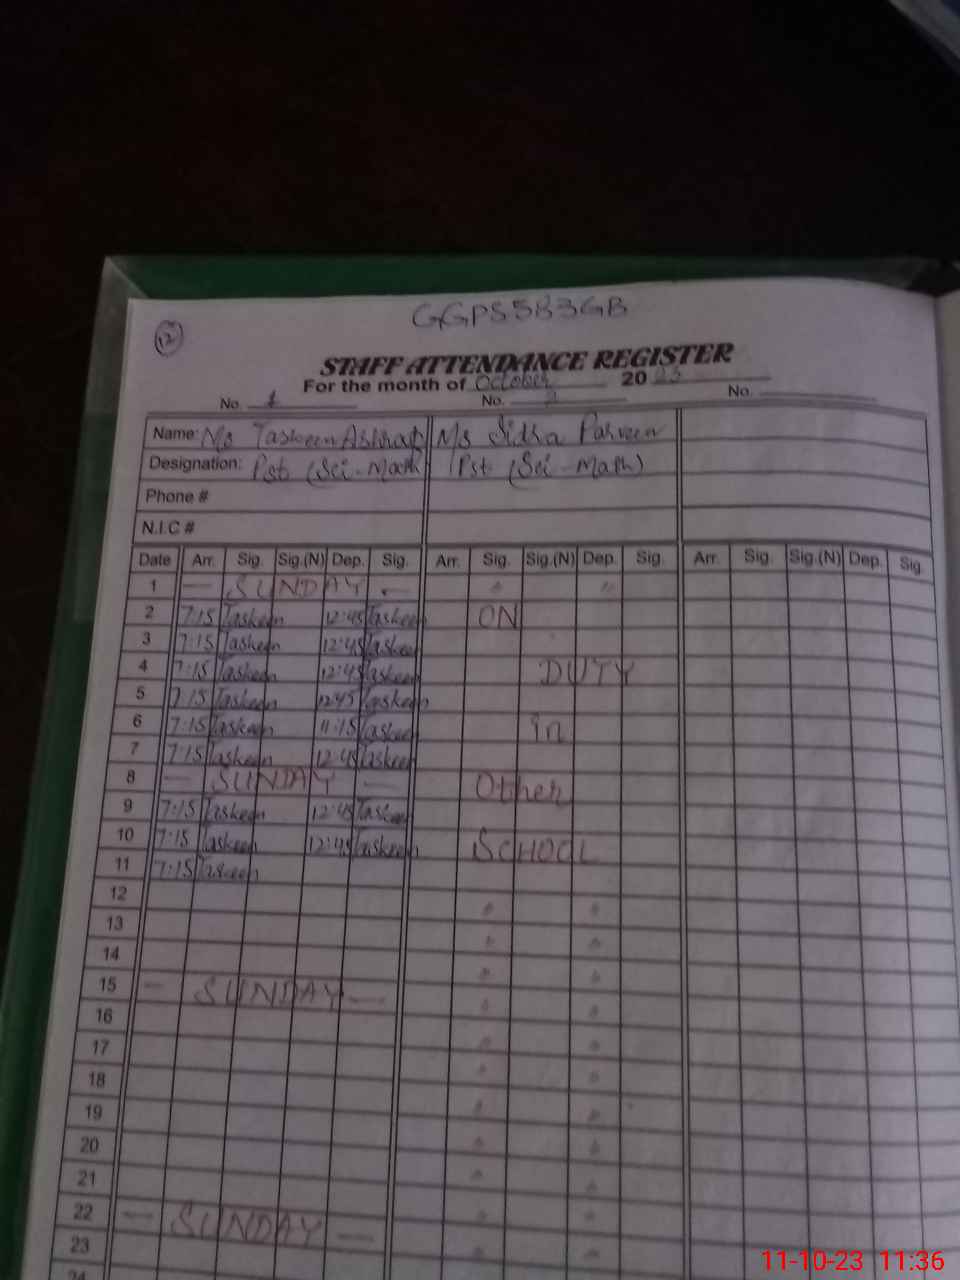 GGPS 583GB
12
STAFF ATTENDANCE REGISTER
For the month of October 20 23
No. 1 No. 2 No.
Name: Ms Taskeen Ashraf Ms Sidra Parveen
Designation: Pst (Sci-Math) Pst (Sci-Math)
Phone #
N.I.C #
Date Arr. Sig. Sig.(N) Dep. Sig. Arr. Sig. Sig.(N) Dep. Sig. Arr. Sig. Sig.(N) Dep. Sig.
1 — SUNDAY — " "
2 7:15 Taskeen 12:45 Taskeen ON
3 7:15 Taskeen 12:45 Taskeen
4 7:15 Taskeen 12:45 Taskeen DUTY
5 7:15 Taskeen 12:45 Taskeen
6 7:15 Taskeen 11:15 Taskeen in
7 7:15 Taskeen 12:45 Taskeen
8 — SUNDAY — Other
9 7:15 Taskeen 12:45 Taskeen
10 7:15 Taskeen 12:45 Taskeen SCHOOL
11 7:15 Taskeen
12 " "
13 " "
14 " "
15 — SUNDAY — " "
16 " "
17 " "
18 " "
19 " "
20 " "
21 " "
22 — SUNDAY — " "
23 " "
24
11-10-23 11:36